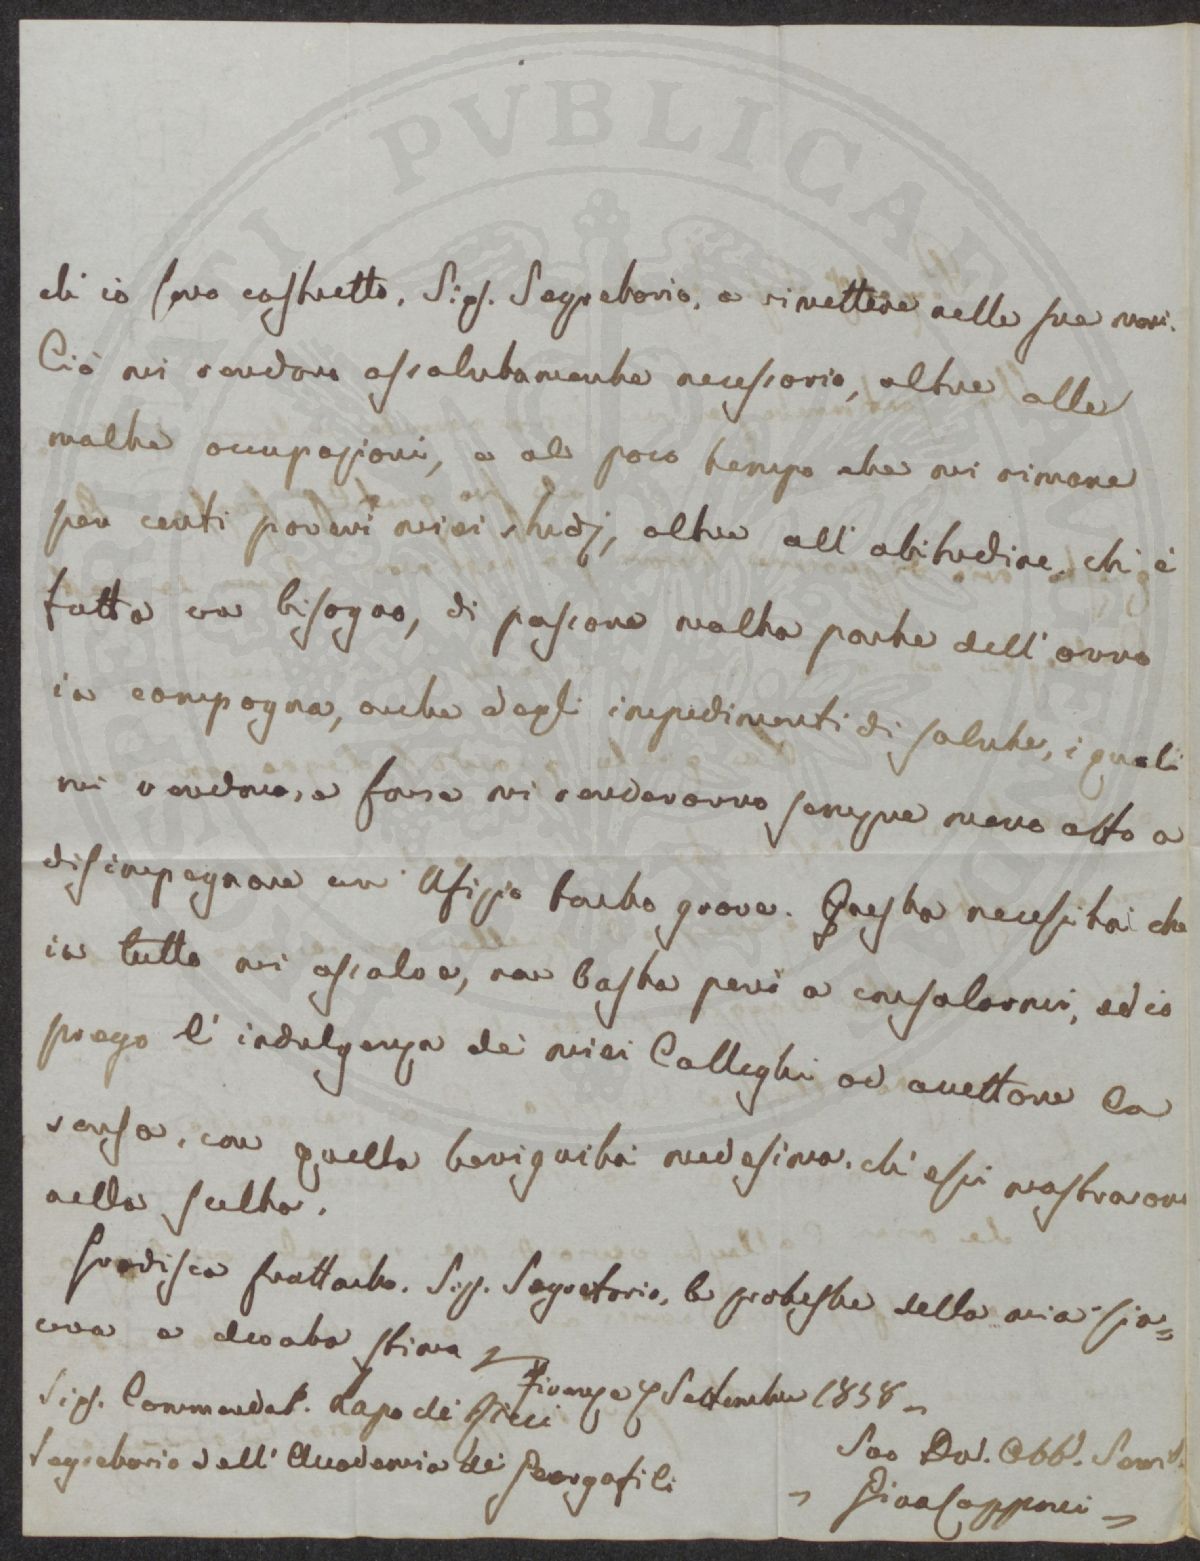 PVBLICAE
ch' io sono costretto, Sigr. Segretario, a rimettere nelle sue mani.
Ciò mi rendono assolutamente necessario, oltre alle
molte occupazioni, e al poco tempo che mi rimane
per certi poveri miei studj, oltre all' abitudine, ch' è
fatta un bisogno, di passare molta parte dell' anno
in campagna, anche degli impedimenti di salute, i quali
mi rendono, e forse mi renderanno sempre meno atto a
disimpegnare un' Ufizio tanto grave. Questa necessità che
in tutto mi assolve, non basta però a consolarmi, ed io
prego l' indulgenza de' miei Colleghi ad accettare la
scusa, con quella benignità medesima, ch' essi mostrarono
nella scelta.
Gradisca frattanto, Sigr. Segretario, le proteste della mia sin=
cera e devota stima
Firenze 9 Settembre 1838
Sigr. Commendat. Lapo de' Ricci
Segretario dell' Accademia de' Georgofili
Suo Dev. Obb. Servit.
Gino Capponi